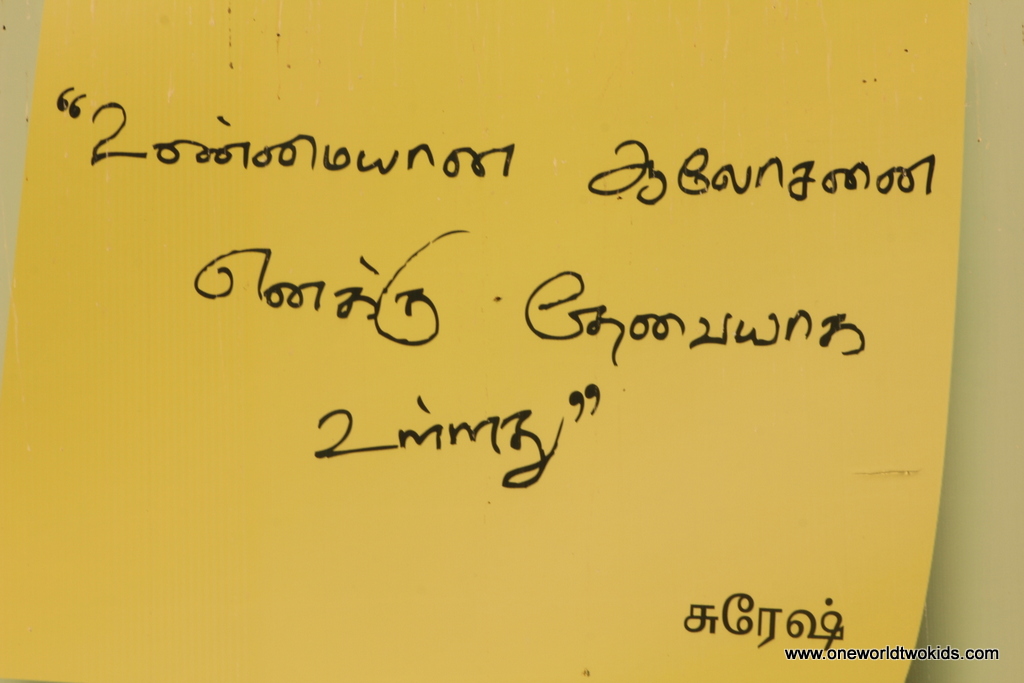 “உண்மையான ஆலோசனை
எனக்கு தேவையாக
உள்ளது”
சுரேஷ்
www.oneworldtwokids.com